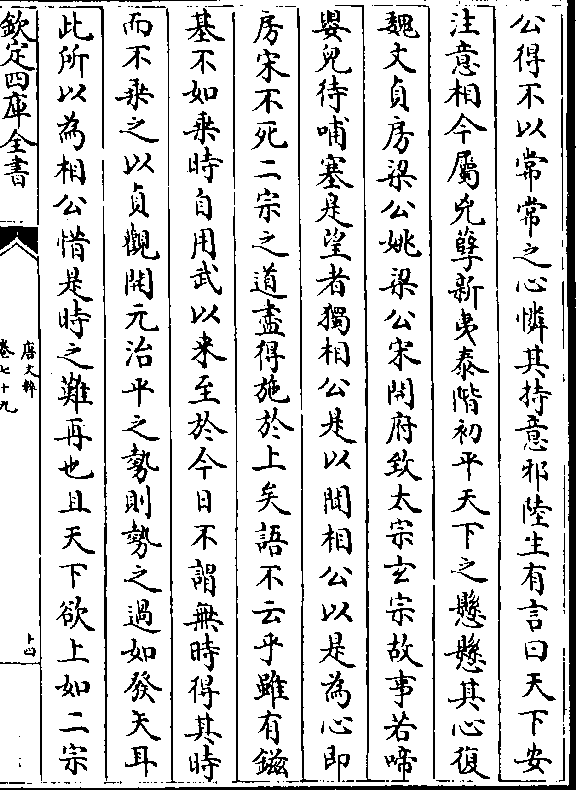 公得不以常常之心憐其持意邪陸生有言曰天下安
注意相今屬兇孽新夷泰階初平天下之懸懸其心復
魏文貞房梁公姚梁公宋開府欽太宗玄宗故事若啼
嬰兒待哺塞是望者獨相公是以聞相公以是為心即
房宋不死二宗之道盡得施於上矣語不云乎雖有鎡
基不如乘時自用武以来至於今日不謂無時得其時
而不乗之以貞觀開元治平之勢則勢之過如發矢耳
此所以為相公惜是時之難再也且天下欲上如二宗
欽定四庫全書
唐文粹
卷七十九
十四